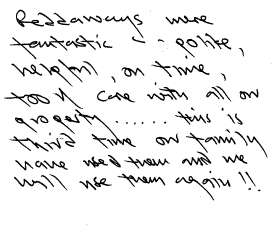 Reddaways were
fantastic -- polite,
helpful, on time,
took care with all our
property ...... this is
third time our family
have used them and we
will use them again!!